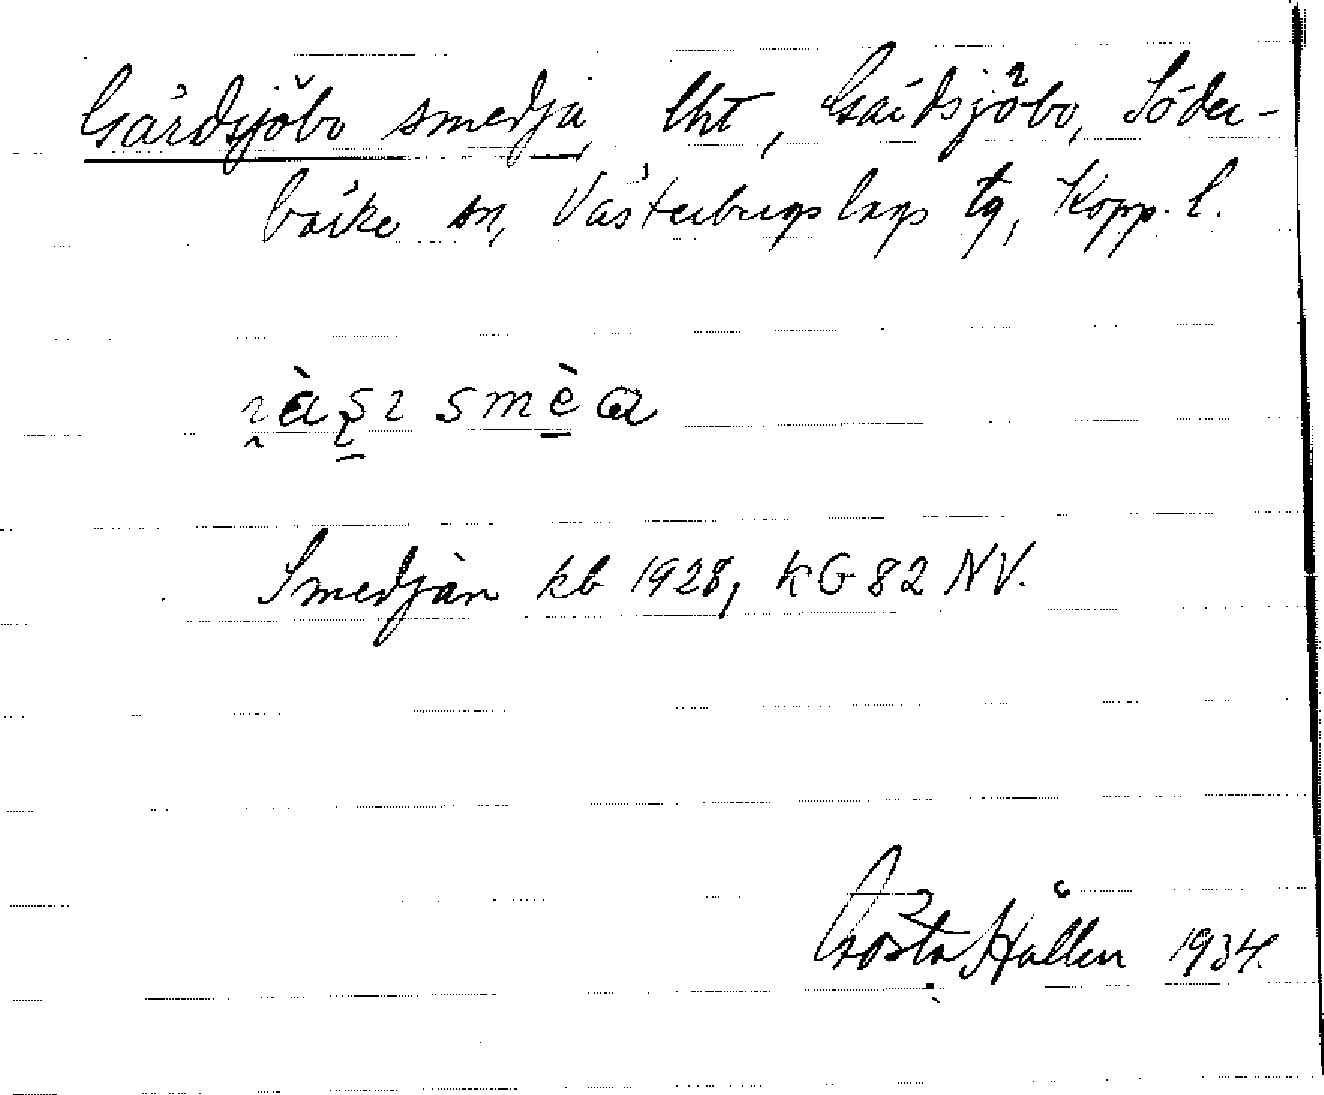 Gårdsjöbo smedja, lht, Gårdsjöbo, Söder-
bärke sn, Västerbergslags tg, Kopp. l.
Smedjan kb 1928, KG 82 NV.
Gösta Hållén 1934.